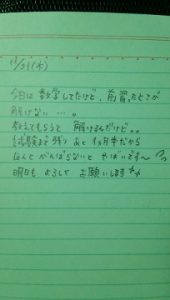 11/21(木)
今日は 数学してたけど、前習ったとこが
解けない…。
教えてもらうと 解けるんだけど…
試験まで残り あと 1ヵ月半だから
ほんと がんばらないと やばいです〜
明日も よろしく お願いします